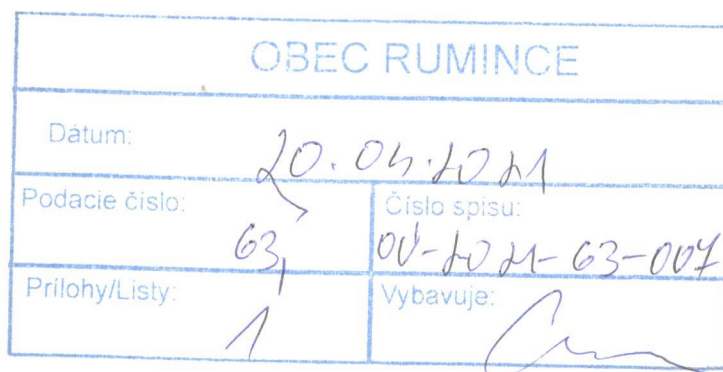 OBEC RUMINCE
Dátum: 20.04.2021
Podacie číslo: 63,
Číslo spisu: OÚ-2021-63-007
Prílohy/Listy: 1
Vybavuje: